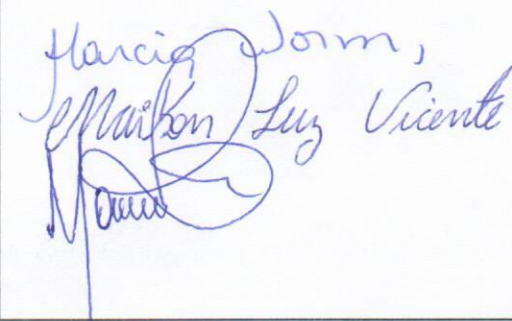 Marcia Worm,
Maikon Luz Vicente